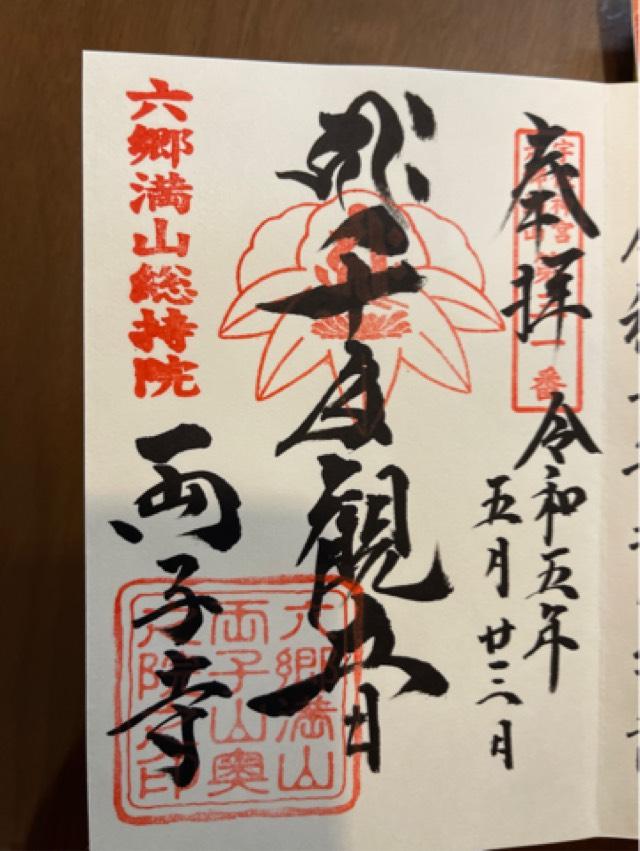 奉拝
令和五年
五月廿三日
宇佐神宮
千手観音
六郷満山総持院
両子寺
六郷満山
両子山奥
之院之印